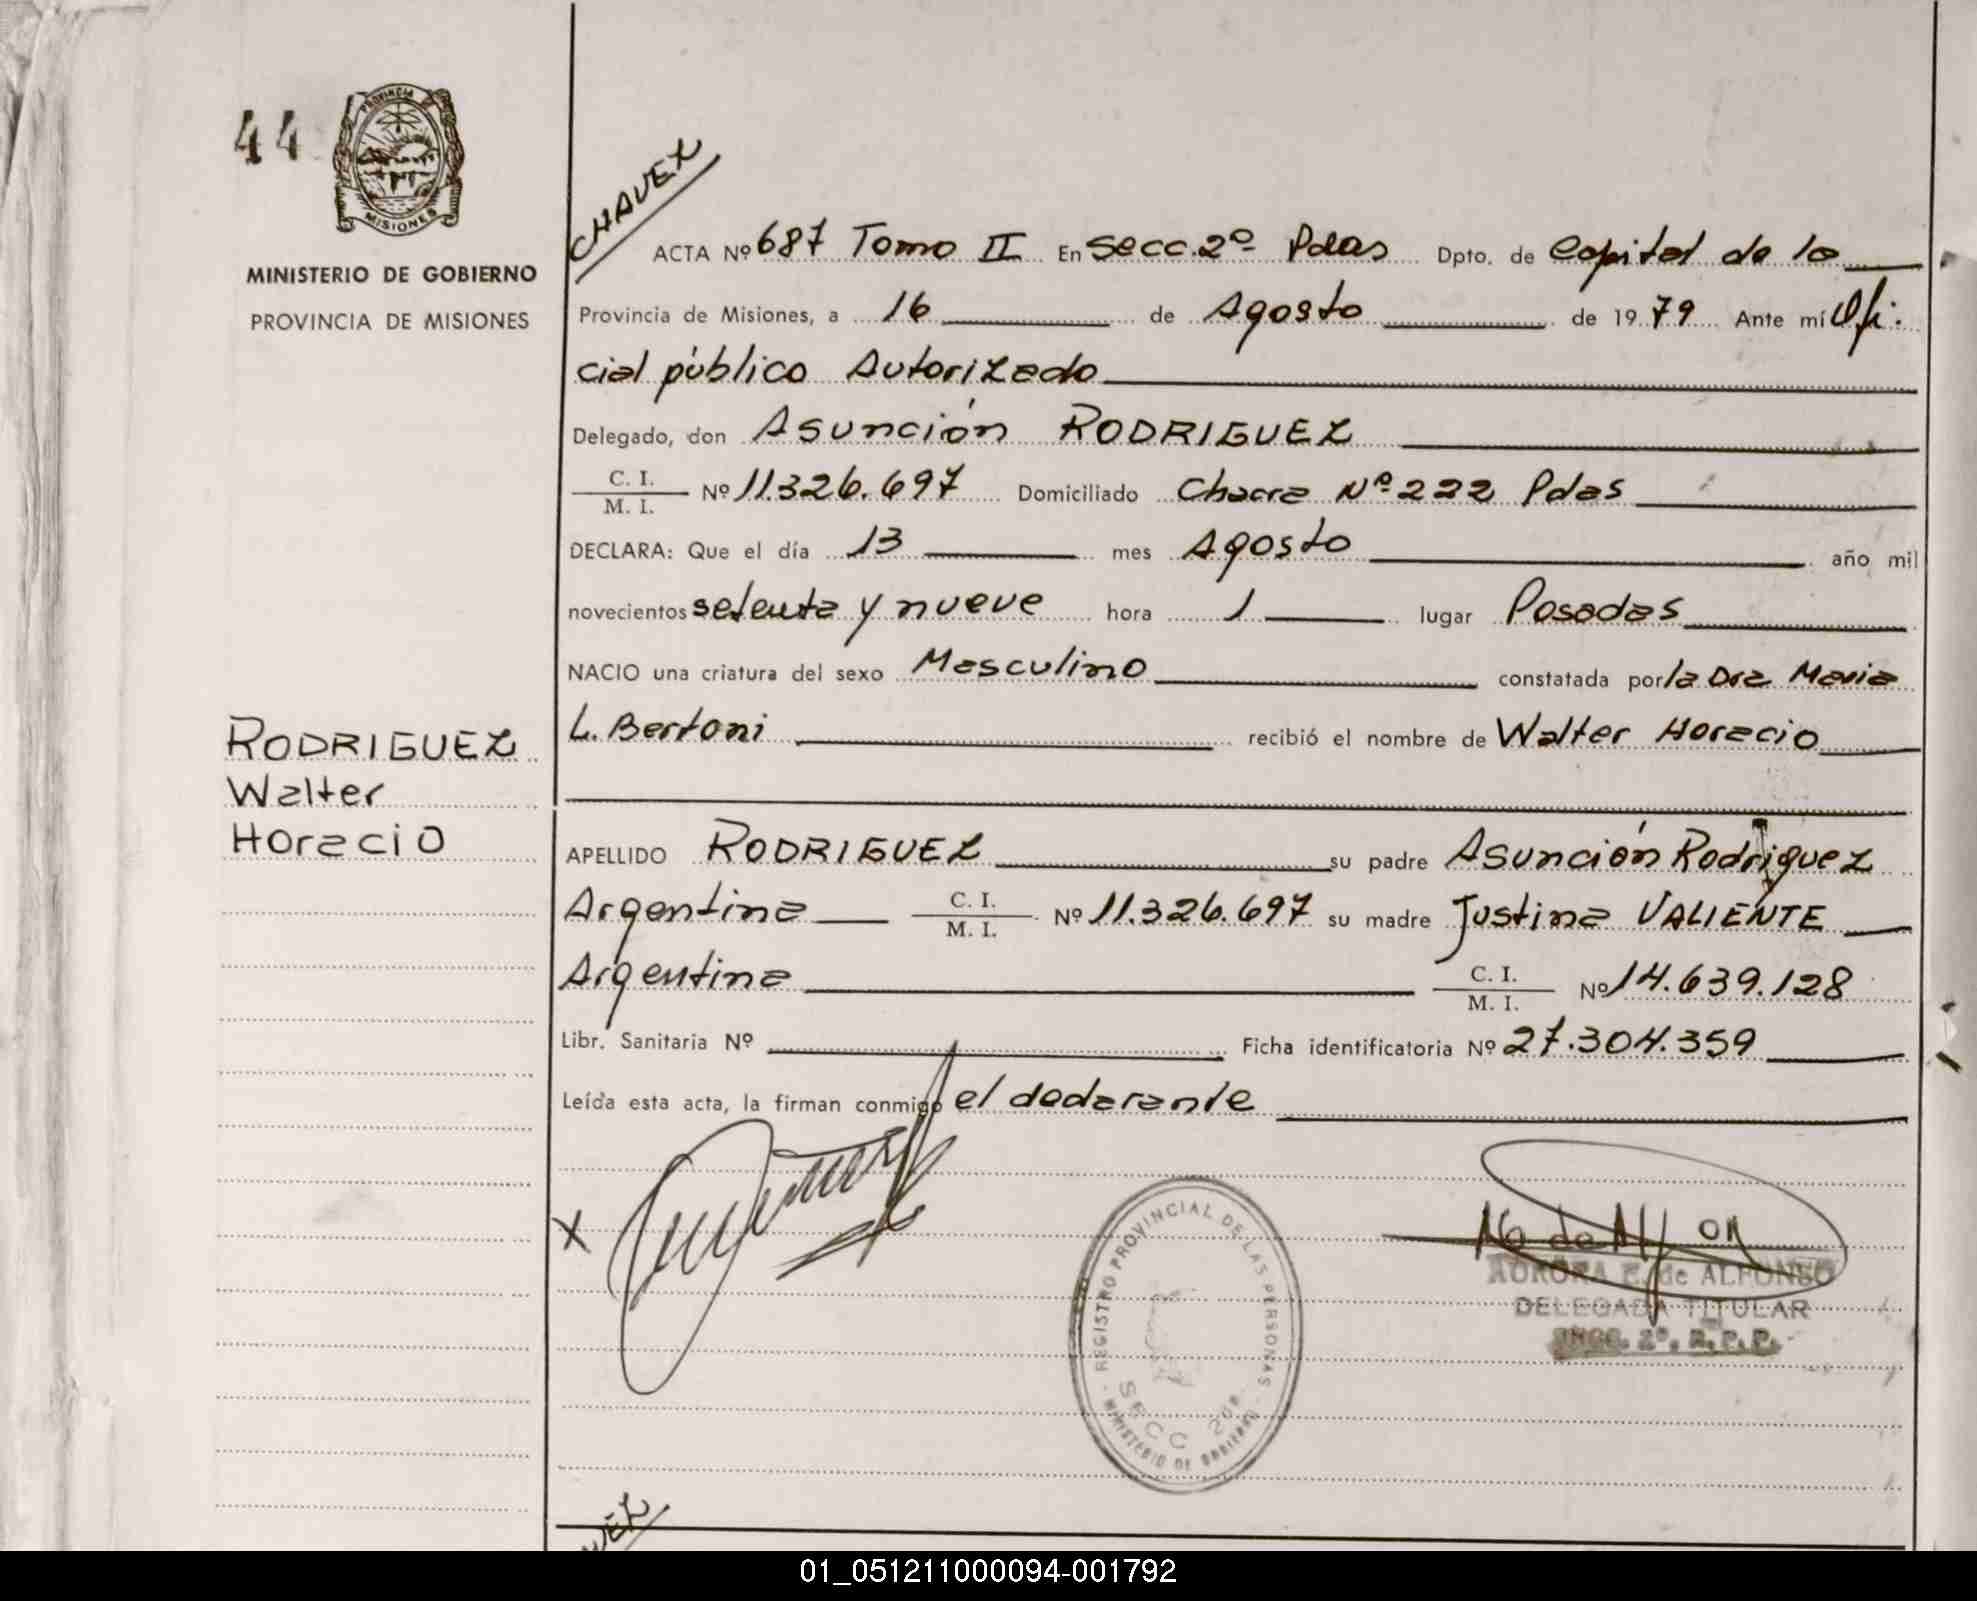 44
PROVINCIA DE
MISIONES
MINISTERIO DE GOBIERNO
PROVINCIA DE MISIONES
CHAVEZ
ACTA Nº 687 Tomo II En Secc. 2º Pdas Dpto. de Capital de la
Provincia de Misiones, a 16 de Agosto de 19 79 Ante mí Ofi-
cial público Autorizado
Delegado, don Asunción RODRIGUEZ
C. I.
M. I. Nº 11.326.697 Domiciliado Chacra Nº 222 Pdas
DECLARA: Que el día 13 mes Agosto año mil
novecientos setenta y nueve hora 1 lugar Posadas
NACIO una criatura del sexo Masculino constatada por la Dra Maria
L. Bertoni recibió el nombre de Walter Horacio
RODRIGUEZ
Walter
Horacio
APELLIDO RODRIGUEZ su padre Asunción Rodriguez
Argentina C. I.
M. I. Nº 11.326.697 su madre Justina VALIENTE
Argentina C. I.
M. I. Nº 14.639.128
Libr. Sanitaria Nº Ficha identificatoria Nº 27.304.359
Leída esta acta, la firman conmigo el declarante
X
REGISTRO PROVINCIAL DE LAS PERSONAS
SECC 2da
MINISTERIO DE GOBIERNO
AURORA E. de ALFONSO
DELEGADA TITULAR
SECC. 2º. R. P. P.
01_051211000094-001792